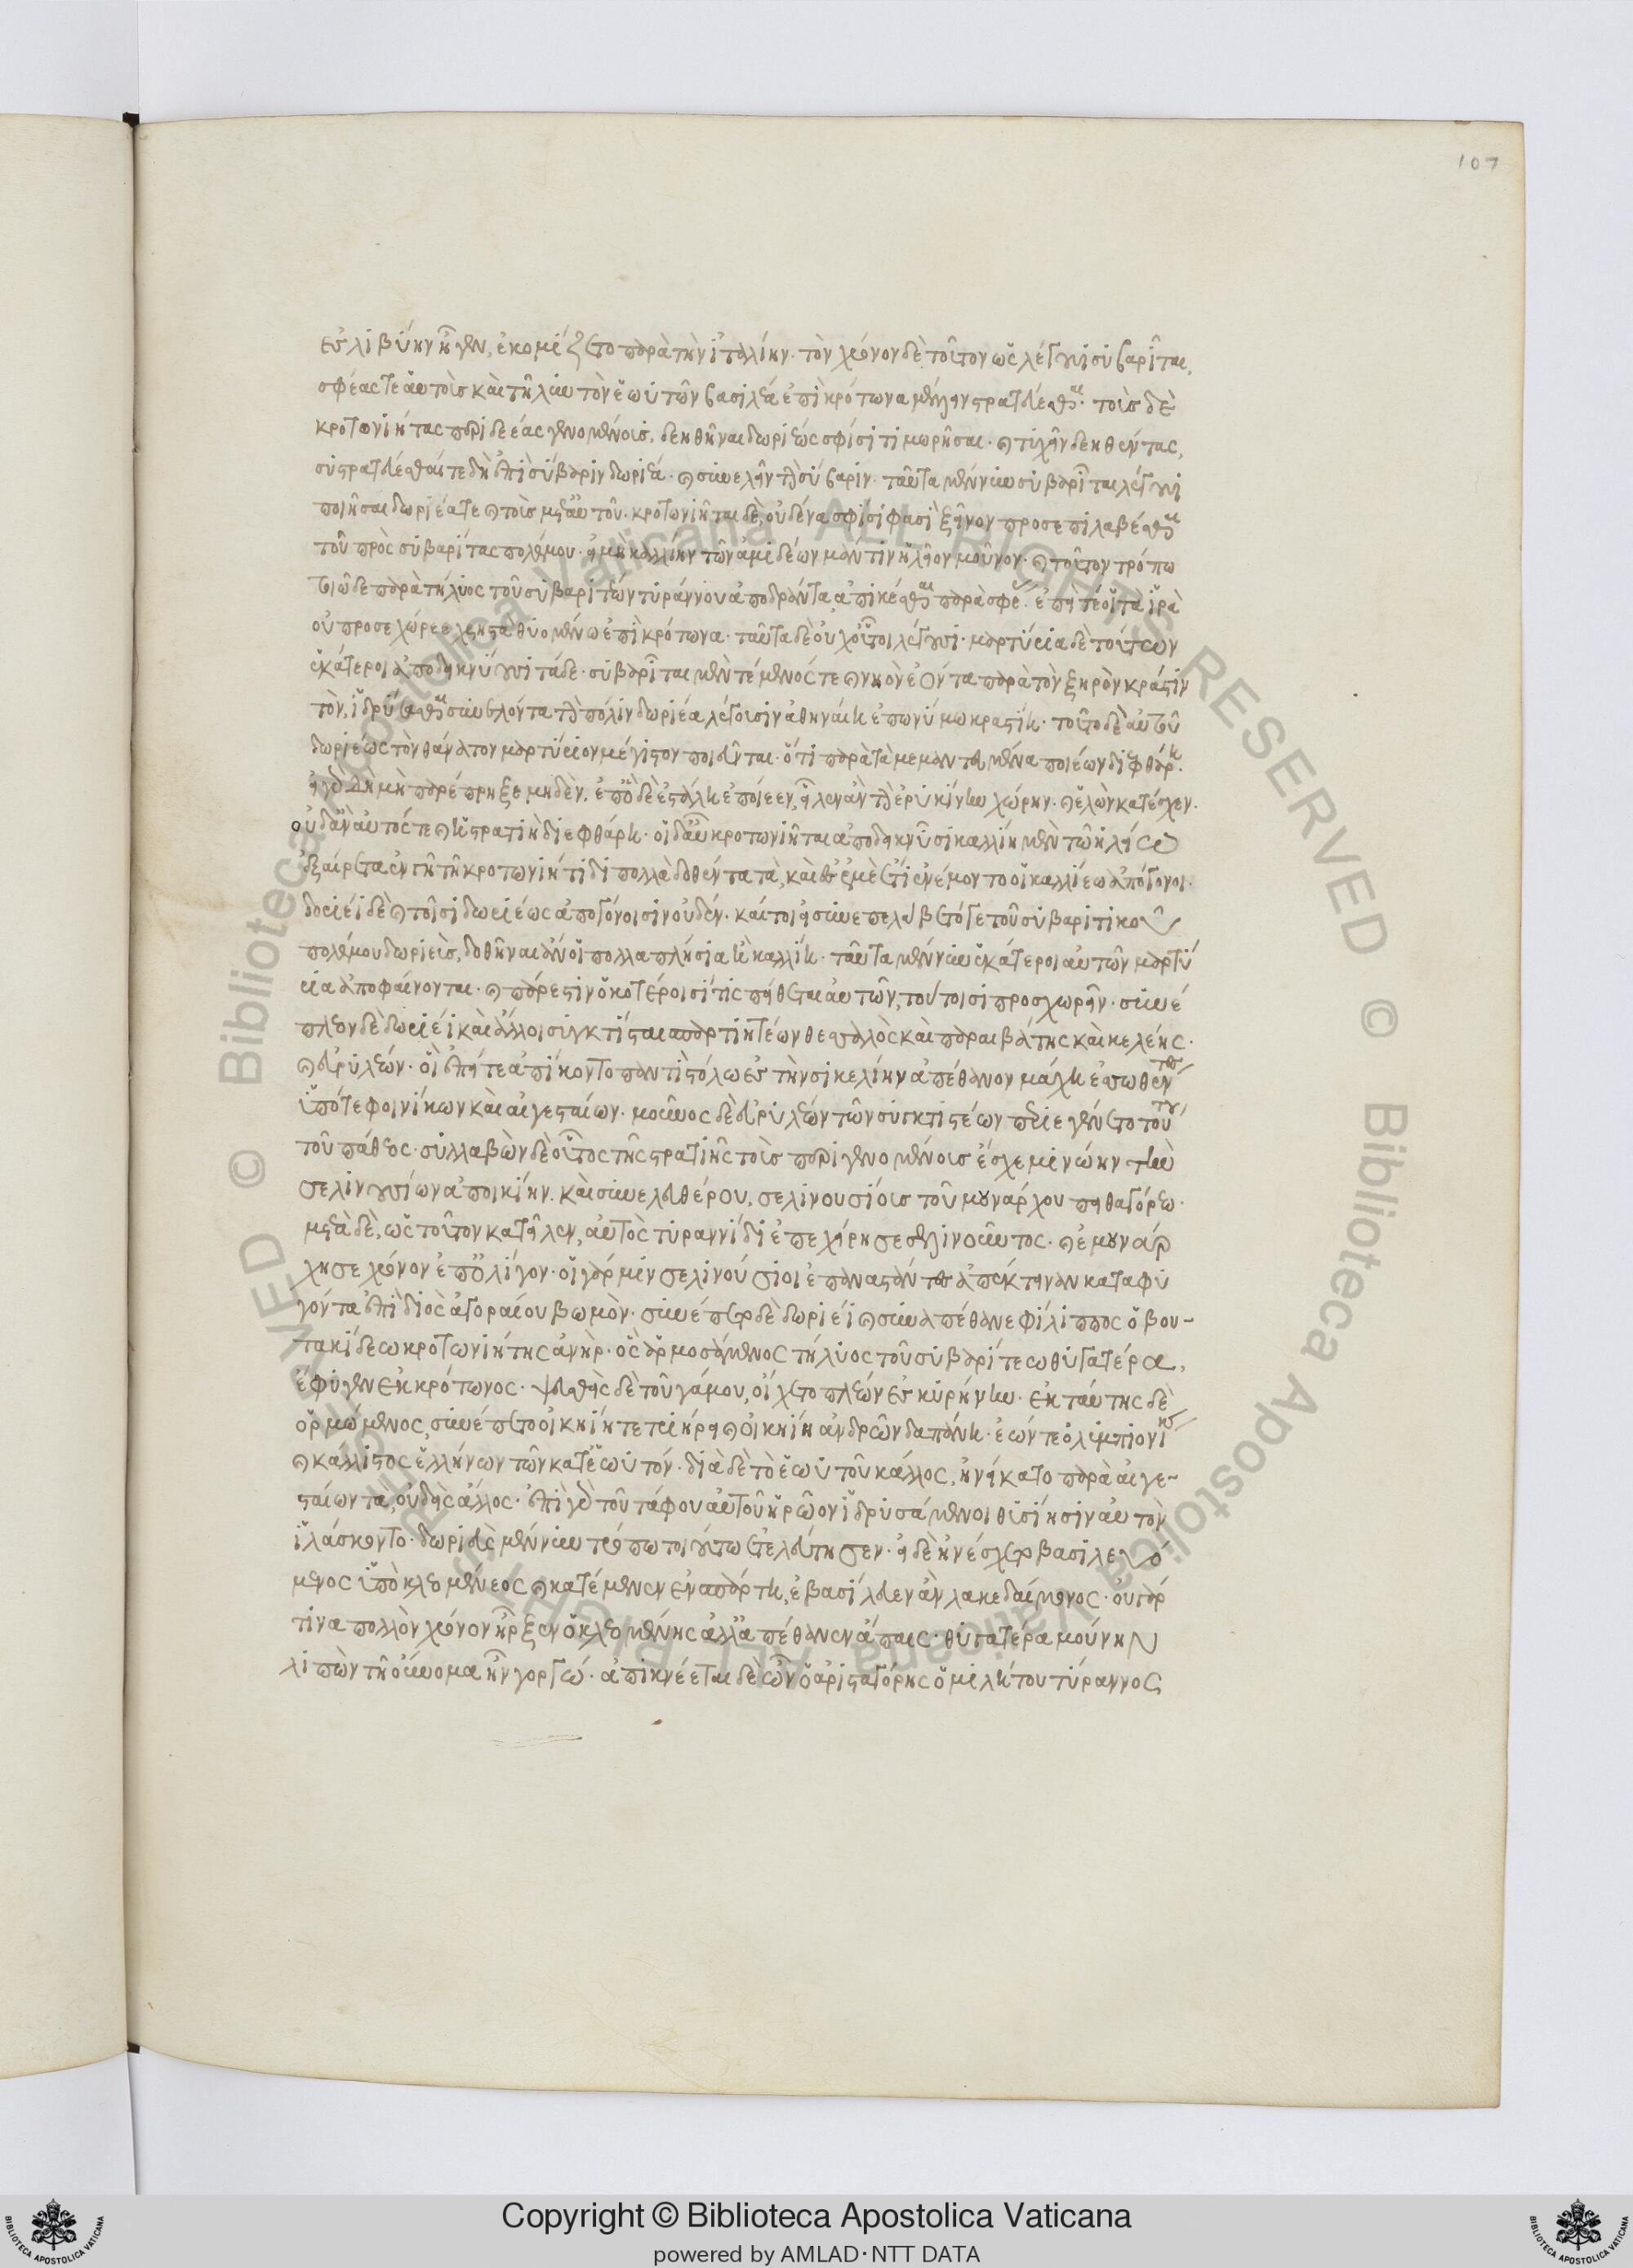 107
ἐς λιβύην ἦγεν, ἐκομίζετο παρὰ τὴν ἰταλίην. τὸν χρόνον δὲ τοῦτον ὡς λέγουσι συβαρῖται,
σφέας τε αὐτοὺς καὶ τῆλυν τὸν ἑωυτῶν βασιλέα ἐπὶ κρότωνα μέλλειν στρατεύεσθαι. τοὺς δὲ
κροτωνιήτας περιδεέας γενομένους, δεηθῆναι δωριέος σφίσι τιμωρῆσαι. καὶ τυχεῖν δεηθέντας,
συστρατεύεσθαί τε δὴ ἐπὶ σύβαριν δωριέα. καὶ συνελεῖν τὴν σύβαριν. ταῦτα μέν νυν συβαρῖται λέγουσι
ποιῆσαι δωριέα τε καὶ τοὺς μετ' αὐτοῦ. κροτωνιῆται δὲ, οὐδένα σφίσι φασὶ ξεῖνον προσεπιλαβέσθαι
τοῦ πρὸς συβαρίτας πολέμου. εἰ μὴ καλλίην τῶν ἰαμιδέων μάντιν ἠλεῖον μοῦνον. καὶ τοῦτον τρόπω
τοιῶδε παρὰ τήλυος τοῦ συβαριτῶν τυράννου ἀποδράντα, ἀπικέσθαι παρὰ σφέας. ἐπεί τέ οἱ τὰ ἱρὰ
οὐ προσεχώρεε χρηστὰ θυομένω ἐπὶ κρότωνα. ταῦτα δὲ οὗτοι λέγουσι. μαρτύρια δὲ τούτων
ἑκάτεροι ἀποδεικνύουσι τάδε. συβαρῖται μὲν τέμενός τε καὶ νηὸν ἐόντα παρὰ τὸν ξηρὸν κράστιν
τὸν, ἱδρύσασθαι συνελόντα τὴν πόλιν δωριέα λέγουσιν ἀθηναίη ἐπωνύμω κραστίη. τοῦτο δὲ αὐτοῦ
δωριέος τὸν θάνατον μαρτύριον μέγιστον ποιεῦνται. ὅτι παρὰ τὰ μεμαντευμένα ποιέων διεφθάρη.
εἰ γὰρ δὴ μὴ παρέπρηξε μηδὲν, ἐπ' ὃ δὲ ἐστάλη ἐποίεεν, εἷλεν ἂν τὴν ἐρυκίνην χώρην. καὶ ἑλὼν κατέσχεν.
οὐδ' ἂν αὐτός τε καὶ ἡ στρατιὴ διεφθάρη. οἱ δ' αὖ κροτωνιῆται ἀποδεικνῦσι καλλίη μὲν τῶ ἠλείω
ἐξαίρετα ἐν γῆ τῆ κροτωνιήτιδι πολλὰ δοθέντα τὰ, καὶ ἐς ἐμὲ ἔτι ἐνέμοντο οἱ καλλίεω ἀπόγονοι.
δωριέι δὲ καὶ τοῖσι δωριέος ἀπογόνοισιν οὐδέν. καίτοι εἰ συνεπελάβετό γε τοῦ συβαριτικοῦ
πολέμου δωριεὺς, δοθῆναι ἄν οἱ πολλαπλήσια ἢ καλλίη. ταῦτα μέν νυν ἑκάτεροι αὐτῶν μαρτύ
ρια ἀποφαίνονται. καὶ πάρεστιν ὁκοτέροισί τις πείθεται αὐτῶν, τούτοισι προσχωρεῖν. συνέ
πλεον δὲ δωριέι καὶ ἄλλοι συγκτίσται σπαρτιητέων θεσσαλὸς καὶ παραιβάτης καὶ κελέης.
καὶ εὐρυλέων. οἳ ἐπείτε ἀπίκοντο παντὶ στόλω ἐς τὴν σικελίην ἀπέθανον μάχη ἑσσωθέντες
ὑπό τε φοινίκων καὶ αἰγεσταίων. μοῦνος δὲ εὐρυλέων τῶν συγκτιστέων περιεγένετο τούτου
τοῦ πάθεος. συλλαβὼν δὲ οὗτος τῆς στρατιῆς τοὺς περιγενομένους ἔσχε μινώην τὴν
σελινουσίων ἀποικίην. καὶ συνελευθέρου, σελινουσίους τοῦ μουνάρχου πειθαγόρεω.
μετὰ δὲ, ὡς τοῦτον κατεῖλεν, αὐτὸς τυραννίδι ἐπεχείρησε σελινοῦντος. καὶ ἐμουνάρ
χησε χρόνον ἐπ' ὀλίγον. οἱ γάρ μιν σελινούσιοι ἐπαναστάντες ἀπέκτειναν καταφυ
γόντα ἐπὶ διὸς ἀγοραίου βωμὸν. συνέσπετο δὲ δωριέι καὶ συναπέθανε φίλιππος ὁ βου-
τακίδεω κροτωνιήτης ἀνὴρ. ὃς ἁρμοσάμενος τήλυος τοῦ συβαρίτεω θυγατέρα,
ἔφυγεν ἐκ κρότωνος. ψευσθεὶς δὲ τοῦ γάμου, οἴχετο πλέων ἐς κυρήνην. ἐκ ταύτης δὲ
ὁρμώμενος, συνέσπετο οἰκηίη τε τριήρει καὶ οἰκηίη ἀνδρῶν δαπάνη. ἐών τε ὀλυμπιονίκης
καὶ κάλλιστος ἑλλήνων τῶν κατ' ἑωυτόν. διὰ δὲ τὸ ἑωυτοῦ κάλλος, ἠνείκατο παρὰ αἰγε-
σταίων τὰ, οὐδεὶς ἄλλος. ἐπὶ γὰρ τοῦ τάφου αὐτοῦ ἡρῶον ἱδρυσάμενοι θυσίησιν αὐτὸν
ἱλάσκονται. δωριεὺς μέν νυν τρόπω τοιούτω ἐτελεύτησεν. εἰ δὲ ἠνέσχετο βασιλευό
μενος ὑπὸ κλεομένεος καὶ κατέμενεν ἐν σπάρτη, ἐβασίλευεν ἂν λακεδαίμονος. οὐ γάρ
τινα πολλὸν χρόνον ἦρξεν ὁ κλεομένης ἀλλ' ἀπέθανεν ἄπαις. θυγατέρα μούνην
λιπὼν τῆ οὔνομα ἦν γοργώ. ἀπικνέεται δὲ ὦν ὁ ἀρισταγόρης ὁ μιλήτου τύραννος
Copyright © Biblioteca Apostolica Vaticana
powered by AMLAD・NTT DATA